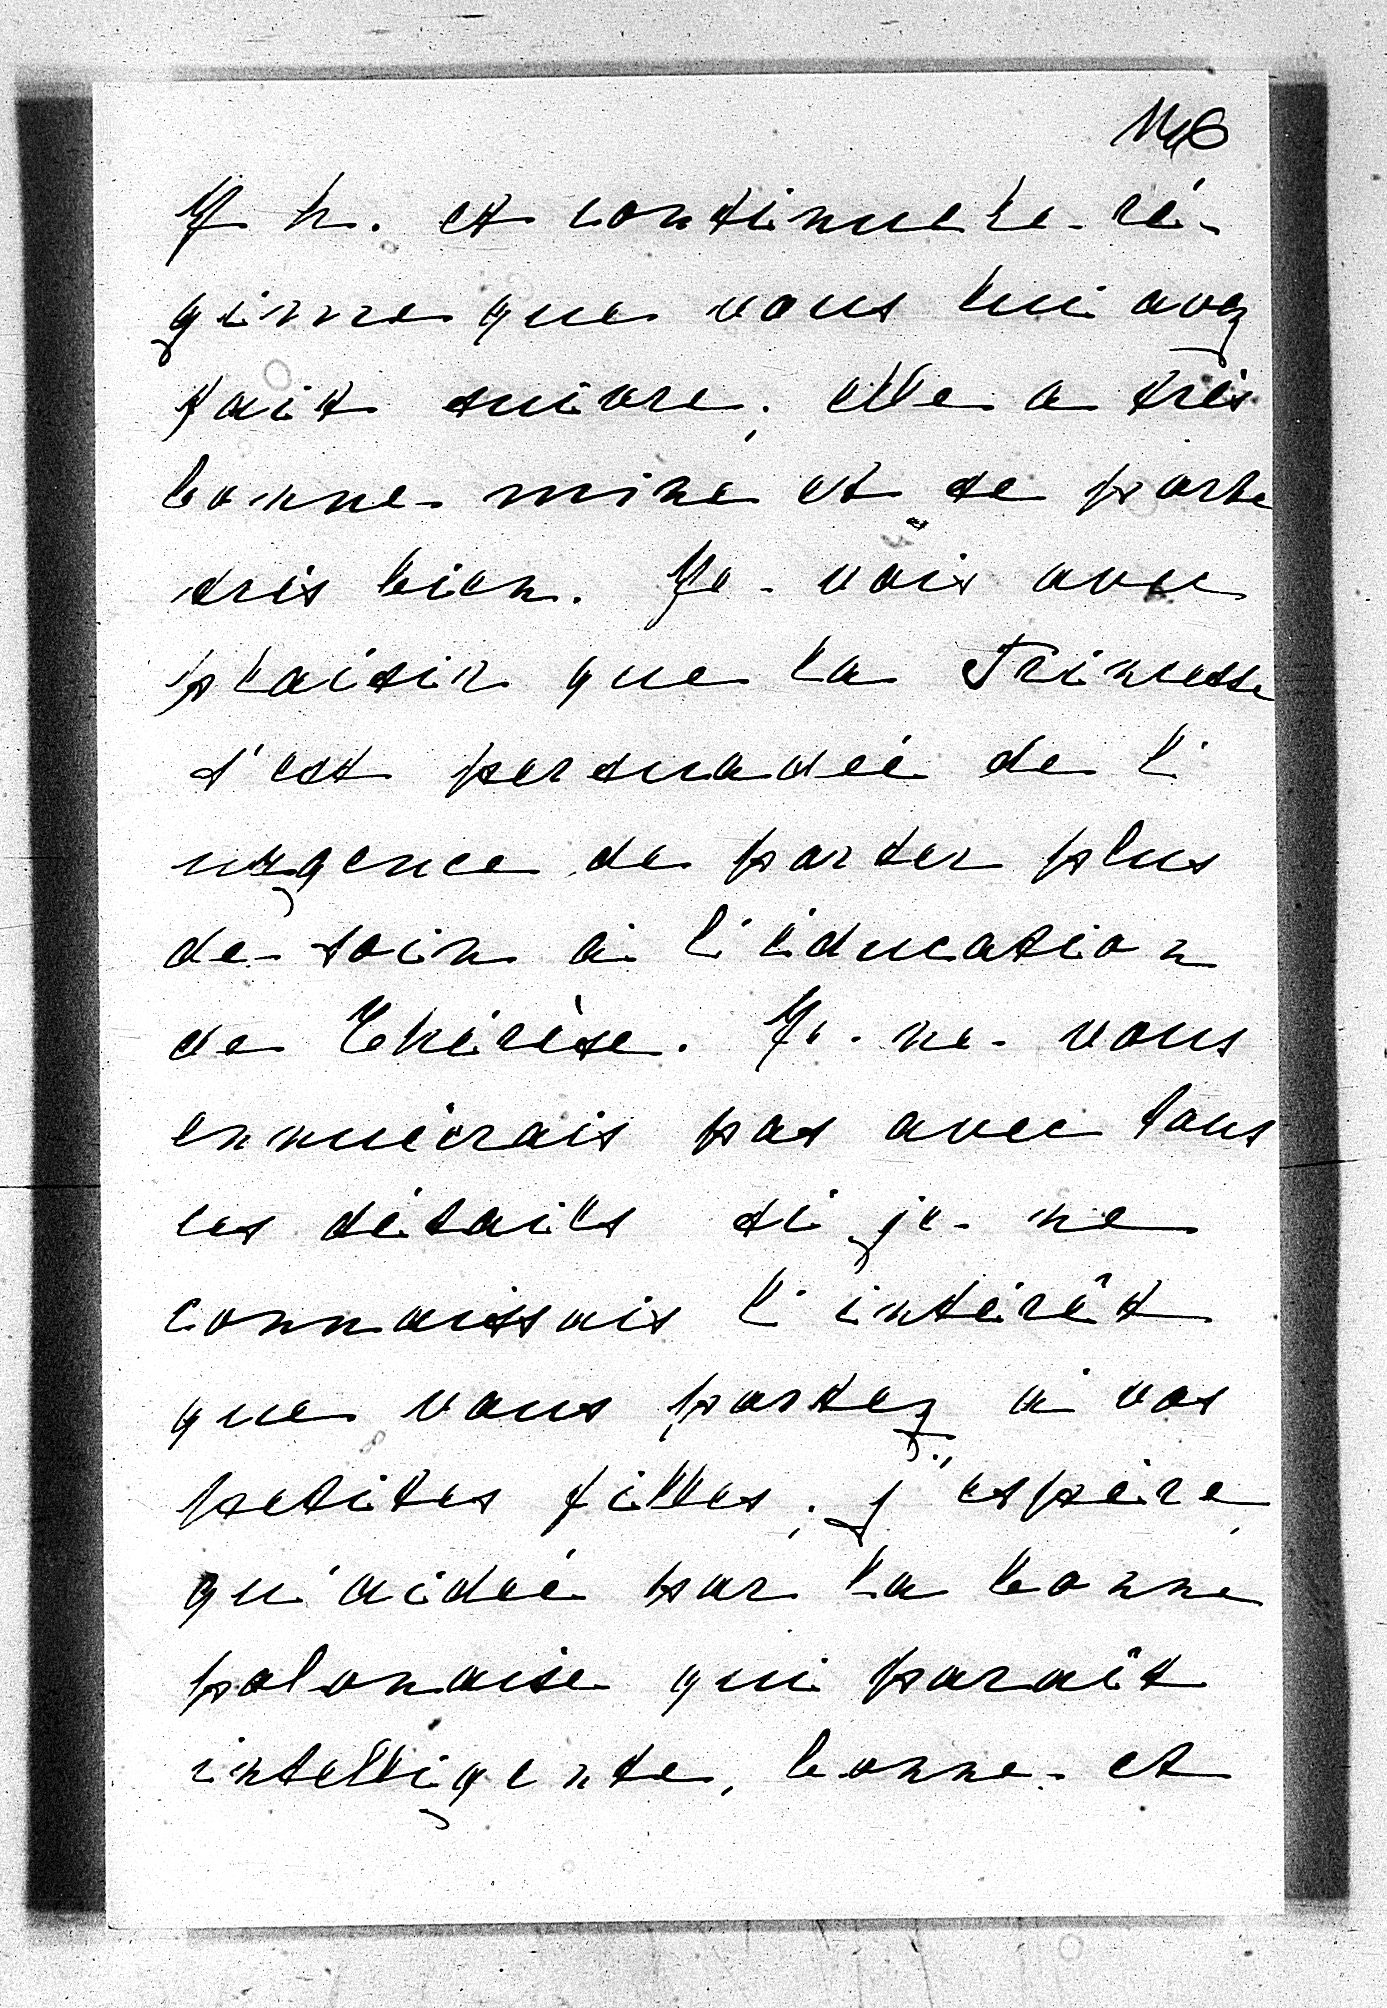 146
7 h. et continue le ré-
gime que vous lui avez
fait suivre, elle a très
bonne mine et se porte
très bien. Je vois avec
plaisir que la Princesse
s'est persuadée de l'
urgence de porter plus
de soin à l'éducation
de Thérèse. Je ne vous
ennuierais pas avec tous
ces détails si je ne
connaissais l'intérêt
que vous portez à vos
petites filles; j'espère,
qu'aidée par la bonne
polonaise qui paraît
intelligente, bonne et